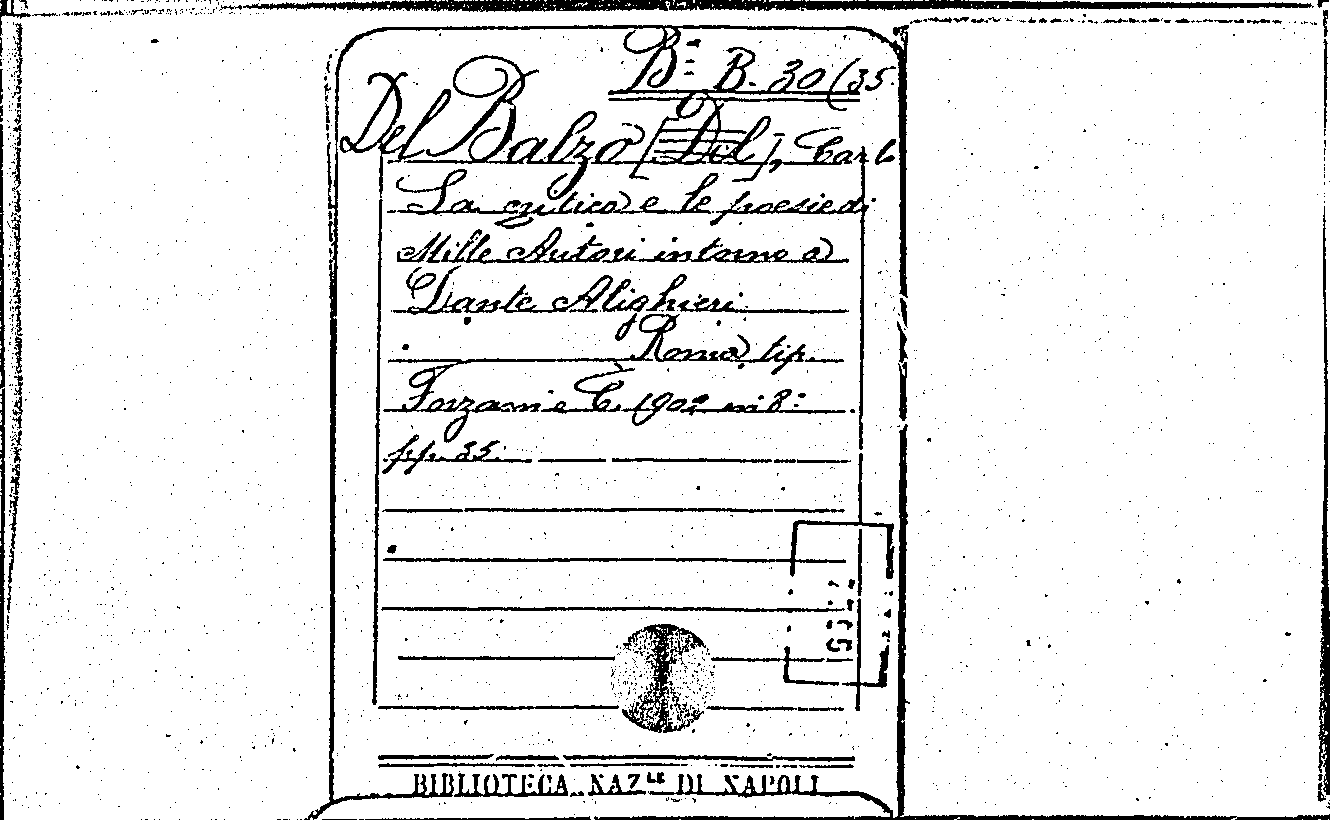 Bª B. 30 (35.
Del Balzo [Del], Carlo
La critica e le poesie di
Mille Autori intorno a
Dante Alighieri
Roma, tip.
Forzani e C. 1902 in 8º
pp. 35.
BIBLIOTECA NAZLE DI NAPOLI